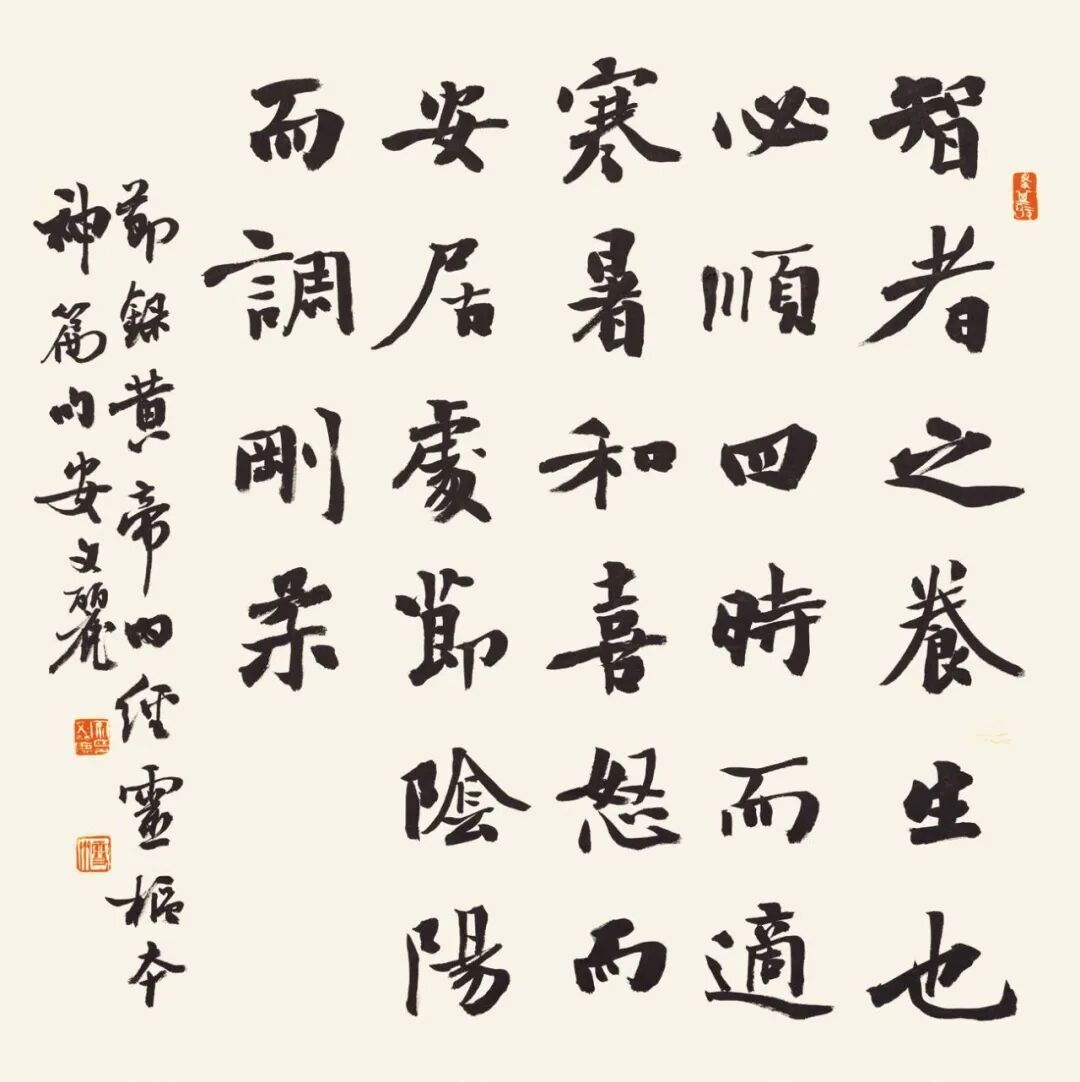 智者之養生也
必順四時而適
寒暑和喜怒而
安居處節陰陽
而調剛柔
節錄黃帝內經靈樞本
神篇句安文麗